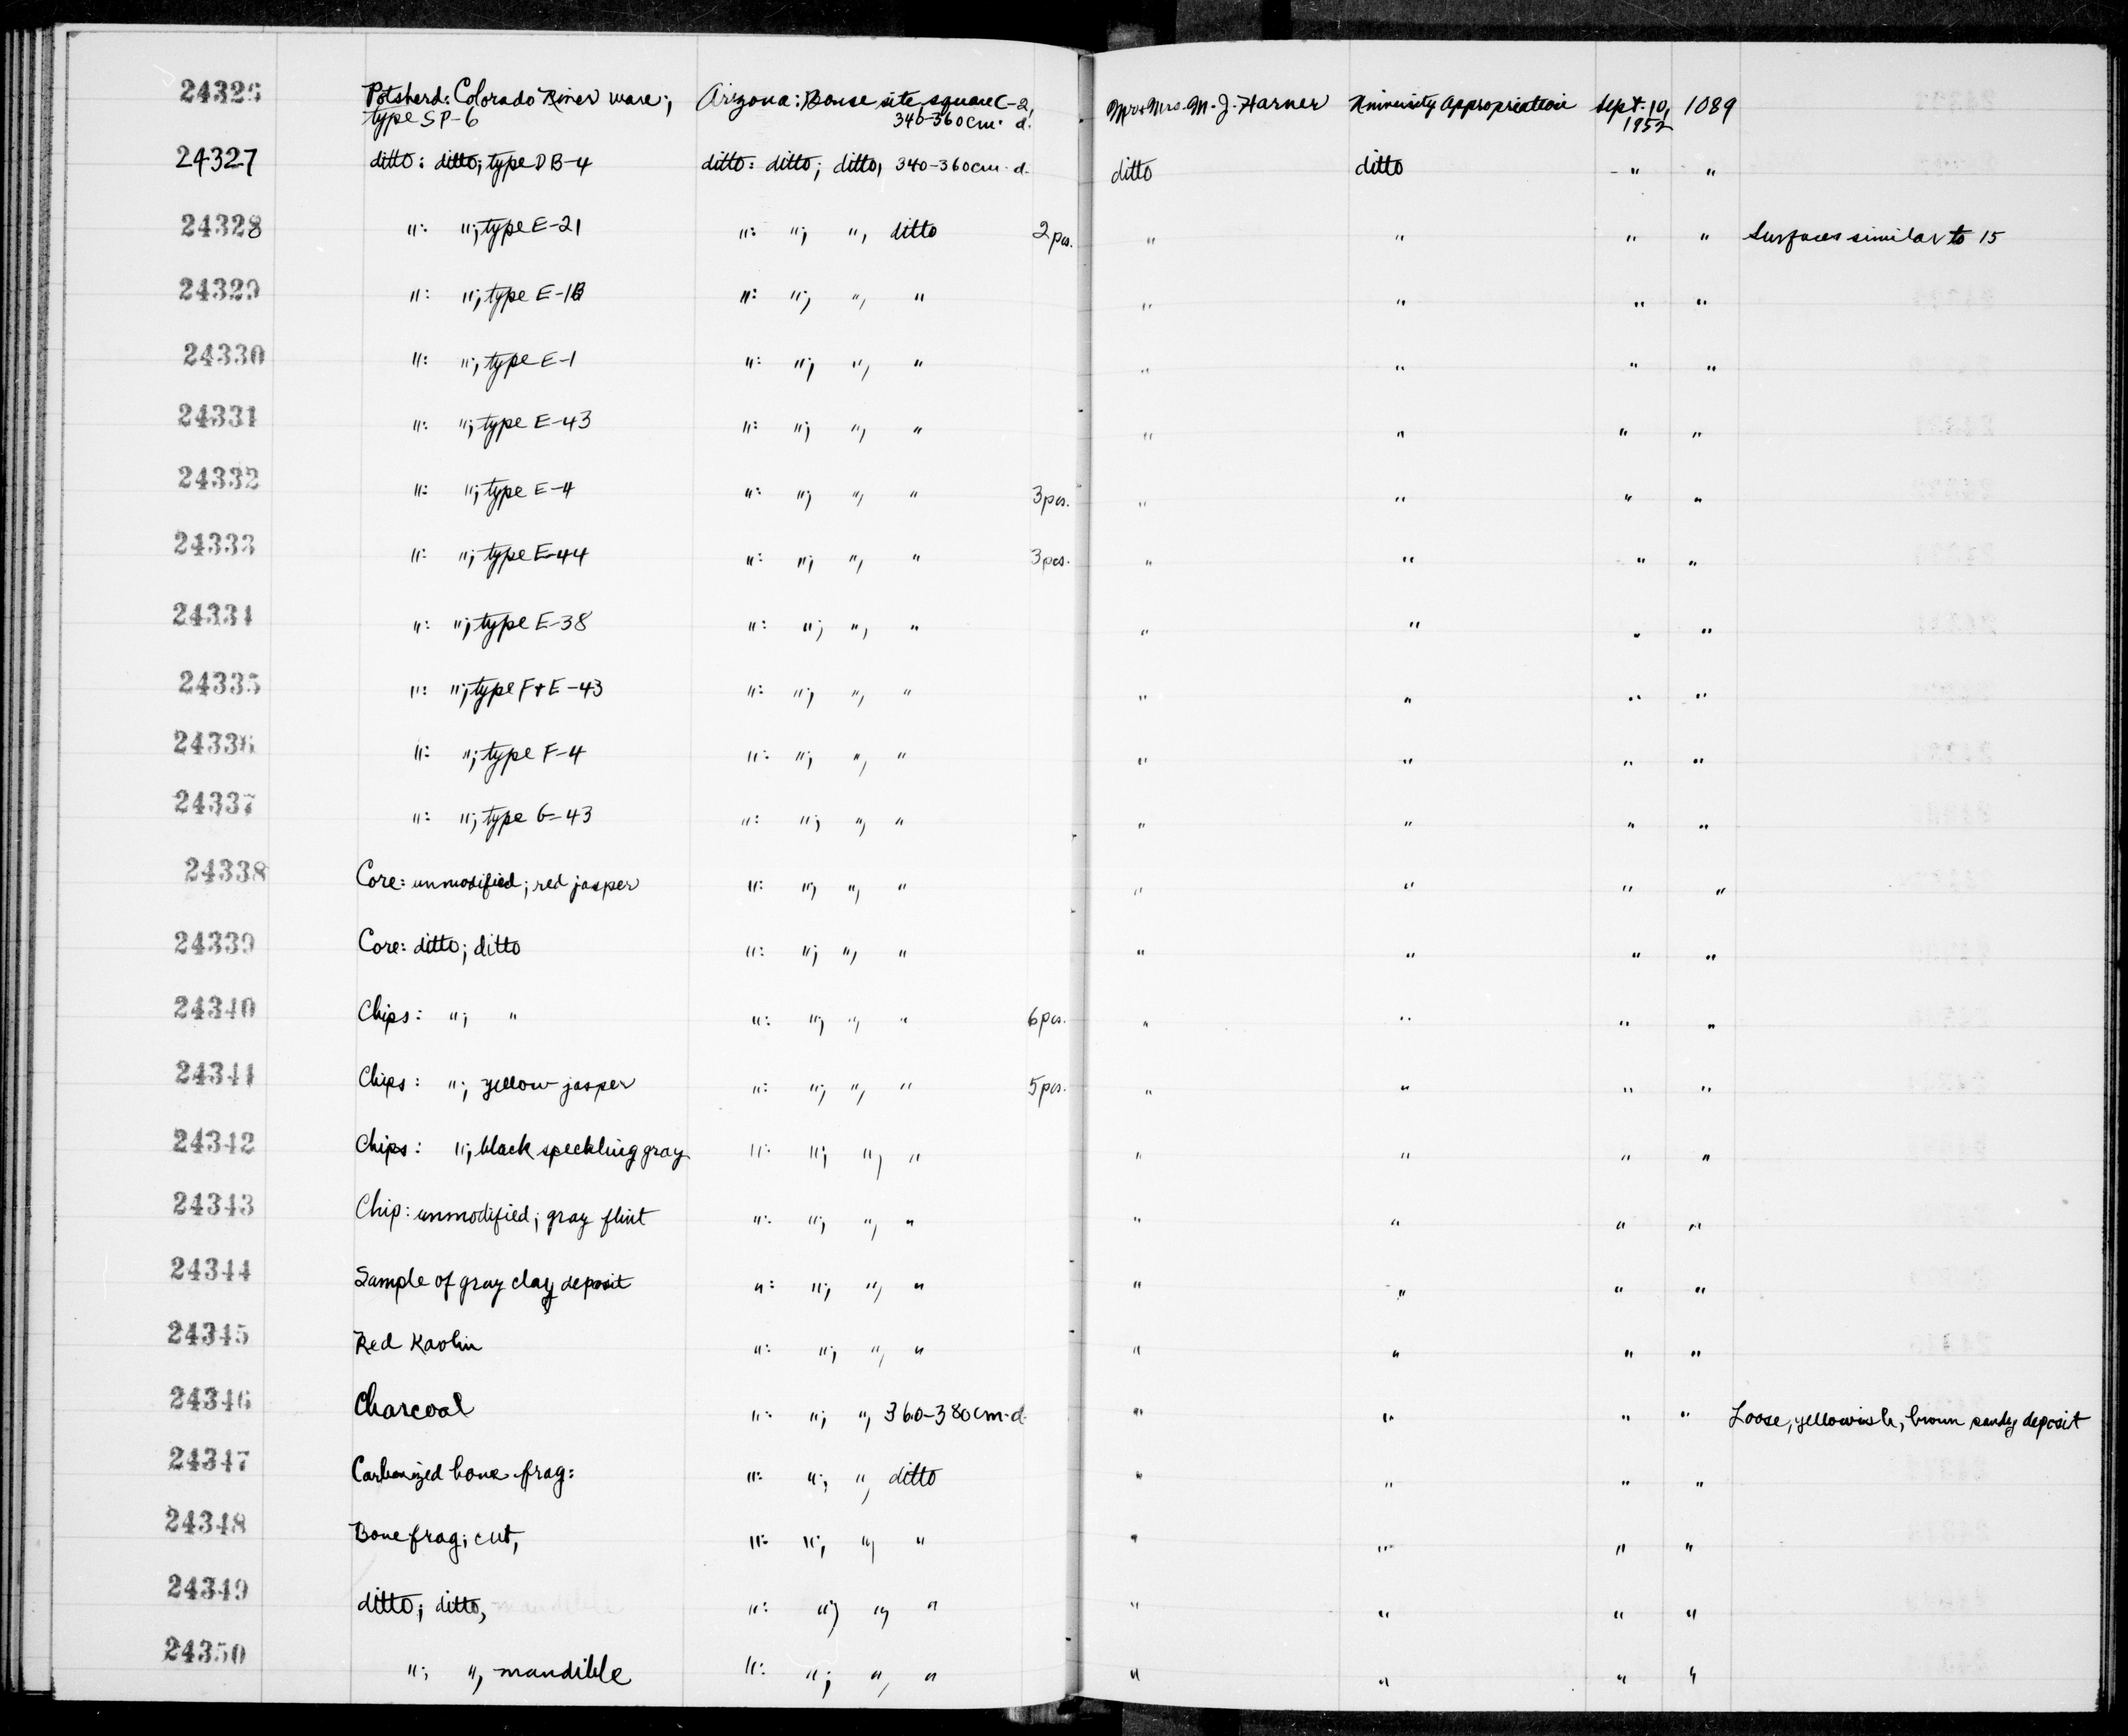 24326 Potsherd: Colorado River ware; Arizona: Bouse site, square C-2, Mr & Mrs. M. J. Harner University Appropriation Sept. 10, 1089
type SP-6 340-360 cm. d. 1952
24327 ditto: ditto; type DB-4 ditto: ditto; ditto, 340-360 cm. d. ditto ditto " "
24328 ": "; type E-21 ": "; ", ditto 2 pcs. " " " " Surfaces similar to 15
24329 ": "; type E-1B ": "; ", " " " " "
24330 ": "; type E-1 ": "; ", " " " " "
24331 ": "; type E-43 ": "; ", " " " " "
24332 ": "; type E-4 ": "; ", " 3 pcs. " " " "
24333 ": "; type E-44 ": "; ", " 3 pcs. " " " "
24334 ": "; type E-38 ": "; ", " " " " "
24335 ": "; type F+E-43 ": "; ", " " " " "
24336 ": "; type F-4 ": "; ", " " " " "
24337 ": "; type G-43 ": "; ", " " " " "
24338 Core: unmodified; red jasper ": "; ", " " " " "
24339 Core: ditto; ditto ": "; ", " " " " "
24340 Chips: "; " ": "; ", " 6 pcs. " " " "
24341 Chips: "; yellow jasper ": "; ", " 5 pcs. " " " "
24342 Chips: "; black speckling gray ": "; ", " " " " "
24343 Chip: unmodified; gray flint ": "; ", " " " " "
24344 Sample of gray clay deposit ": "; ", " " " " "
24345 Red Kaolin ": "; ", " " " " "
24346 Charcoal ": "; ", 360-380 cm. d. " " " " Loose, yellowish, brown sandy deposit
24347 Carbonized bone frag: ": "; ", ditto " " " "
24348 Bone frag; cut, ": "; ", " " " " "
24349 ditto; ditto, ": "; ", " " " " "
24350 "; ", mandible ": "; ", " " " " "